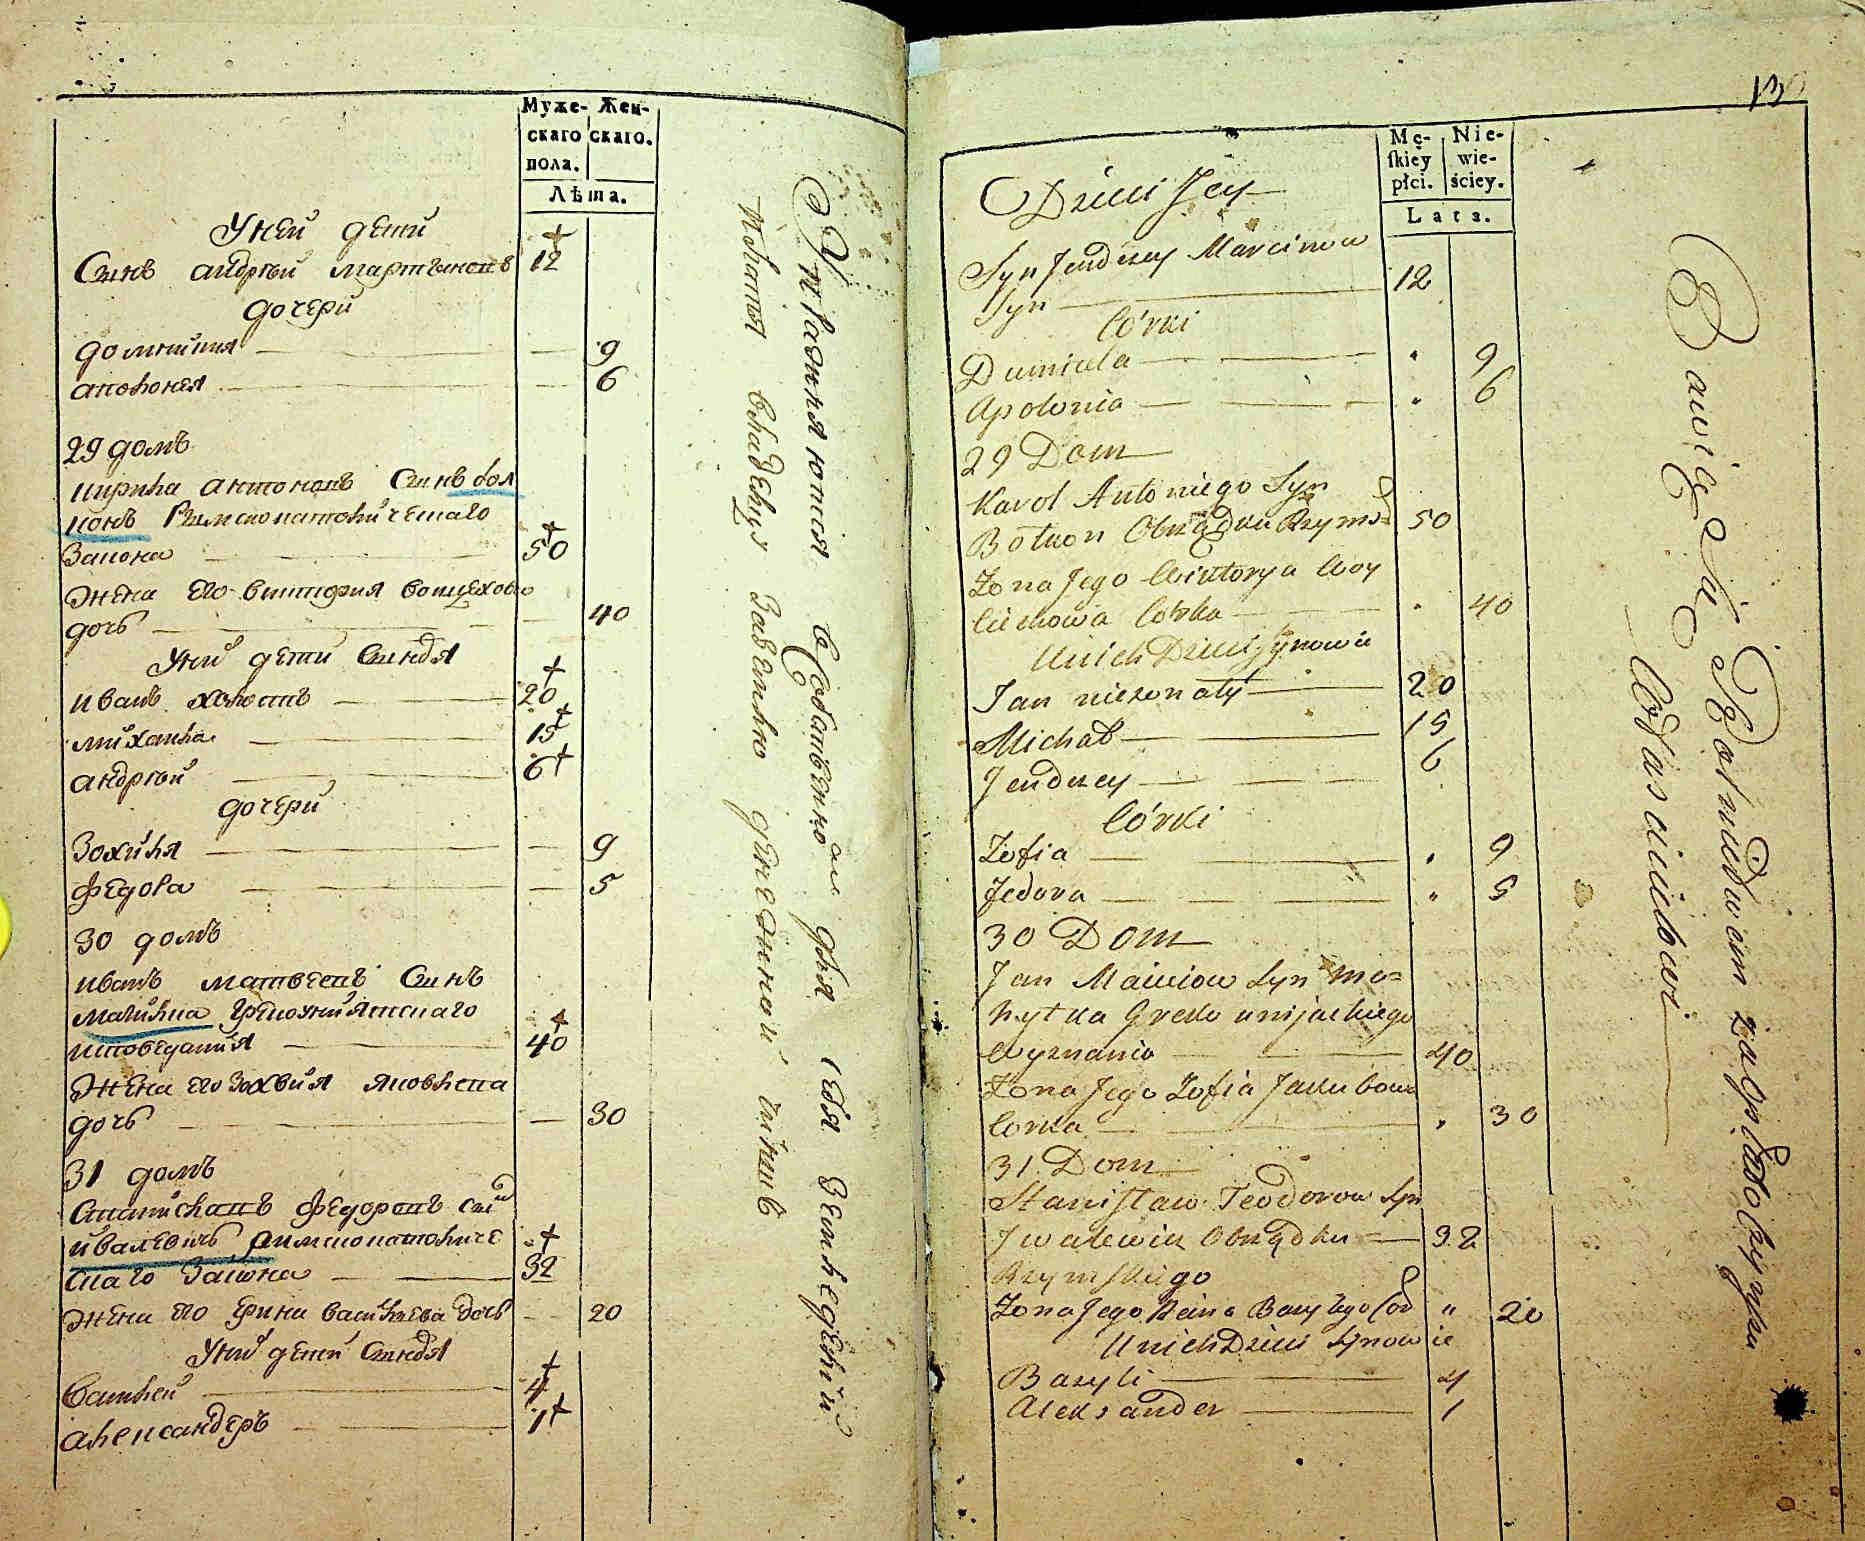 Муже-
скаго
пола.
Жен-
скаго.
Лѣта.
У ней дети
Сынъ андрей мартыновъ 12
дочери
доминика 9
аполонея 6
29 домъ
кирила антоновъ Сынъ бол
конъ Римскокатоличешаго
Закона 50
Жена его виктория воицехова
дочь 40
У них дети Сыновья
иванъ холостъ 20
михаила 15
андрей 6
дочери
Зофия 9
федора 5
30 домъ
иванъ матвеевъ Сынъ
Грекоунияцкаго
исповедания 40
Жена его Зофия яковлева
дочь 30
31 домъ
Станиславъ федоровъ сын
ивалевичъ Римскокатоличе
скаго Закона 32
Жена его васильева дочь 20
У них дети Сыновья
василей 4
александеръ 1
Управляются Собственно для себя Земледелии
платя владельцу денежной чиншъ
13
Mę-
ſkiey
płci.
Nie-
wie-
ściey.
Lata.
Dzieci Jey
Syn Jendrzey Marcinow
Syn 12
Córki
Dumicela 9
Apolonia 6
29 Dom
Karol Antoniego Syn
Bołkon Obrządku Rzyms= 50
Żona Jego Wiktorya Woy
ciechowa Córka 40
U nich Dzieci Synowie
Jan nieżonaty 20
Michał 15
Jendrzey 6
Córki
Zofia 9
Fedora 5
30 Dom
Jan Maciiow Syn Mo=
Greko unijackiego
Wyznania 40
Żona Jego Zofia Jakubowa
Corka 30
31 Dom
Stanisław Teodorow Syn
Iwalewicz Obrządku 32
Rzymskiego
Żona Jego Bazylego Cor 20
U nich Dzieci Synowie
Bazyli 4
Alexander 1
Bawię się Rolnictwem
Właścicielowi